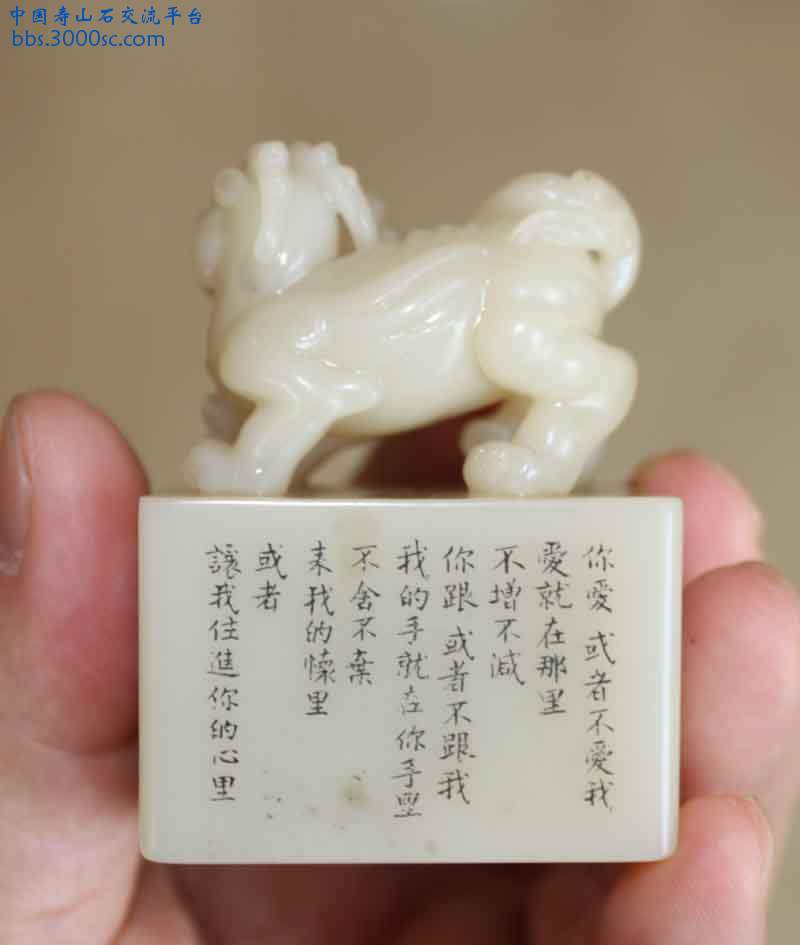 中国寿山石交流平台
bbs.3000sc.com
你愛或者不愛我
愛就在那里
不增不減
你跟或者不跟我
我的手就在你手里
不舍不棄
来我的懷里
或者
讓我住進你的心里